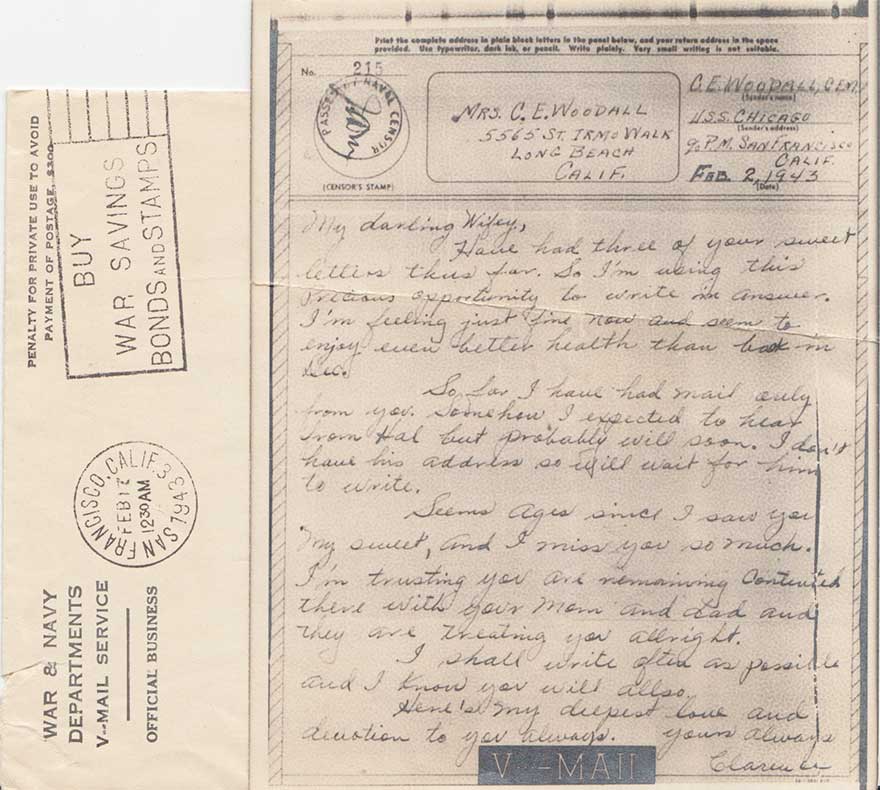 PENALTY FOR PRIVATE USE TO AVOID
PAYMENT OF POSTAGE, $300
BUY
WAR SAVINGS
BONDS AND STAMPS
SAN FRANCISCO, CALIF. 3
FEB 1
12 30 AM
1943
WAR & NAVY
DEPARTMENTS
V--MAIL SERVICE
OFFICIAL BUSINESS
Print the complete address in plain block letters in the panel below, and your return address in the space
provided. Use typewriter, dark ink, or pencil. Write plainly. Very small writing is not suitable.
No. 215
PASSED BY NAVAL CENSOR
(CENSOR'S STAMP)
MRS. C. E. WOODALL
5565 ST. IRMO WALK
LONG BEACH
CALIF.
C. E. WOODALL, CEM
(Sender's name)
U.S.S. CHICAGO
(Sender's address)
% P.M. SAN FRANCISCO
CALIF.
FEB. 2, 1943
(Date)
My darling Wifey,
Have had three of your sweet
letters thus far. So I'm using this
precious opportunity to write in answer.
I'm feeling just fine now and seem to
enjoy even better health than back in
Dec.
So far I have had mail only
from you. Somehow I expected to hear
from Hal but probably will soon. I don't
have his address so will wait for him
to write.
Seems ages since I saw you
My sweet, and I miss you so much.
I'm trusting you are remaining contented
there with your Mom and Dad and
they are treating you allright.
I shall write often as possible
and I know you will allso.
Here's my deepest love and
devotion to you always. Yours Always
Clarence
V--MAIL